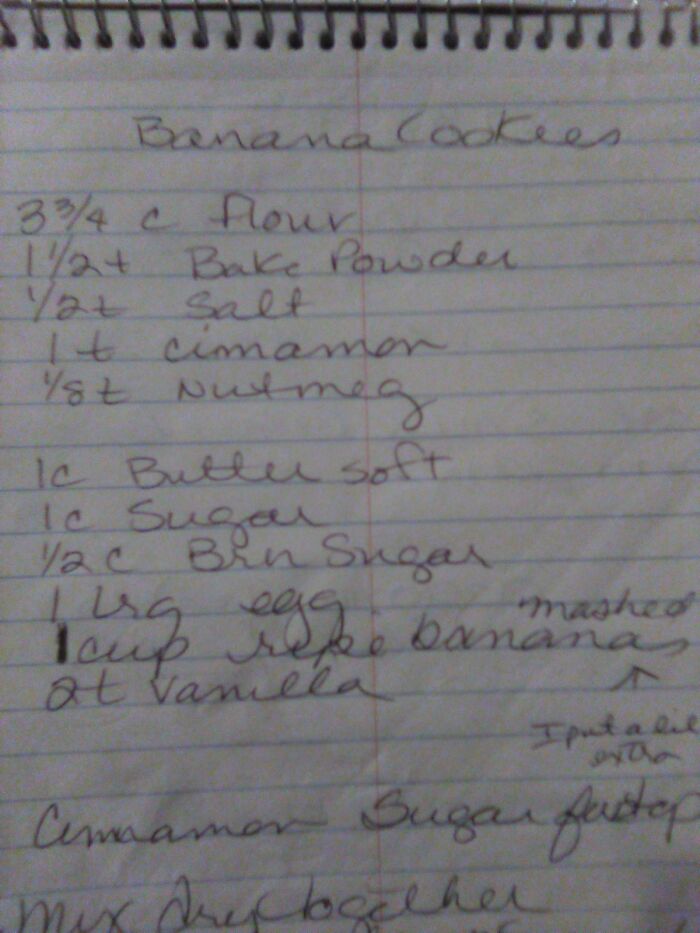 Banana Cookies
3 3/4 c flour
1 1/2 t Bake Powder
1/2 t Salt
1 t cinnamon
1/8 t Nutmeg
1c Butter soft
1c Sugar
1/2 c Brn Sugar
1 Lrg egg
mashed
1 cup ripe bananas
2t Vanilla
I put a lil
extra
Cinnamon Sugar for top
Mix dry together